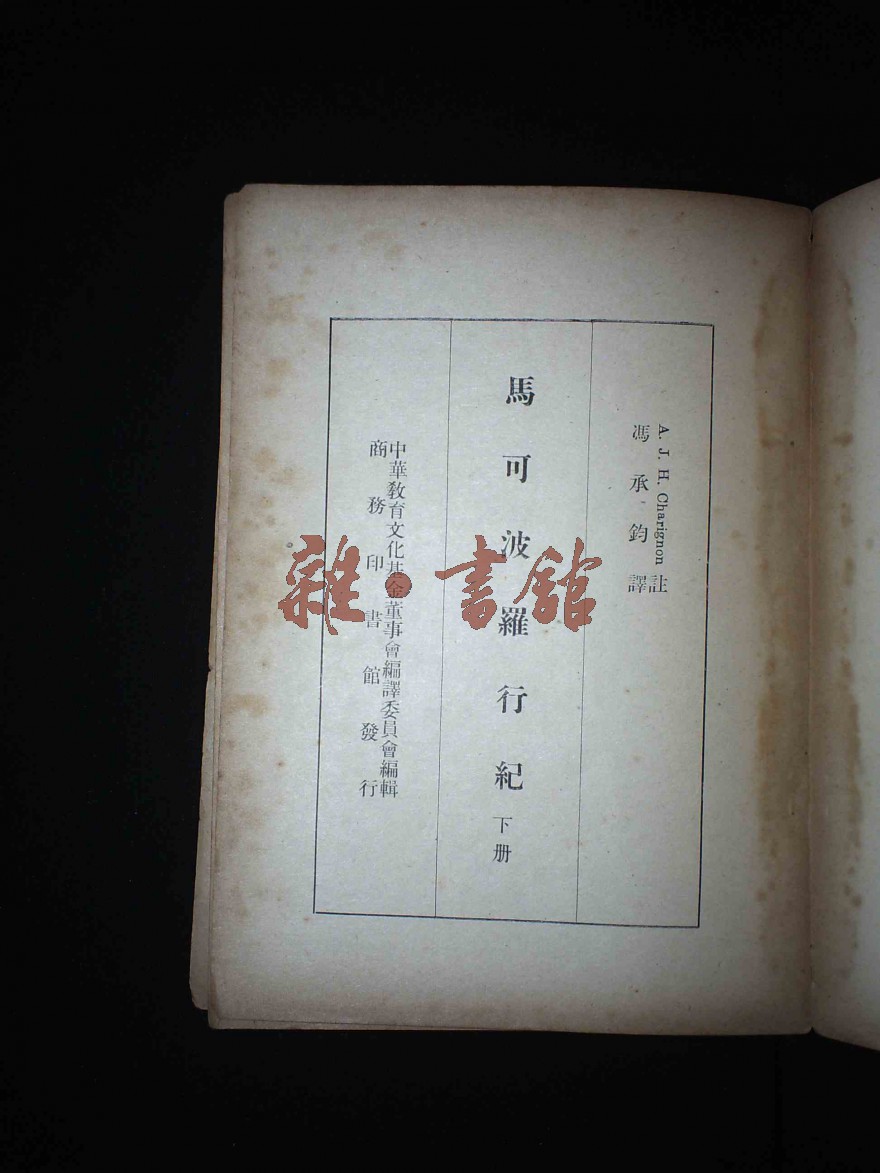 A. J. H. Charignon 註
馮承鈞譯
馬可波羅行紀 下册
中華教育文化基金董事會編譯委員會編輯
商務印書館發行
雜·書館